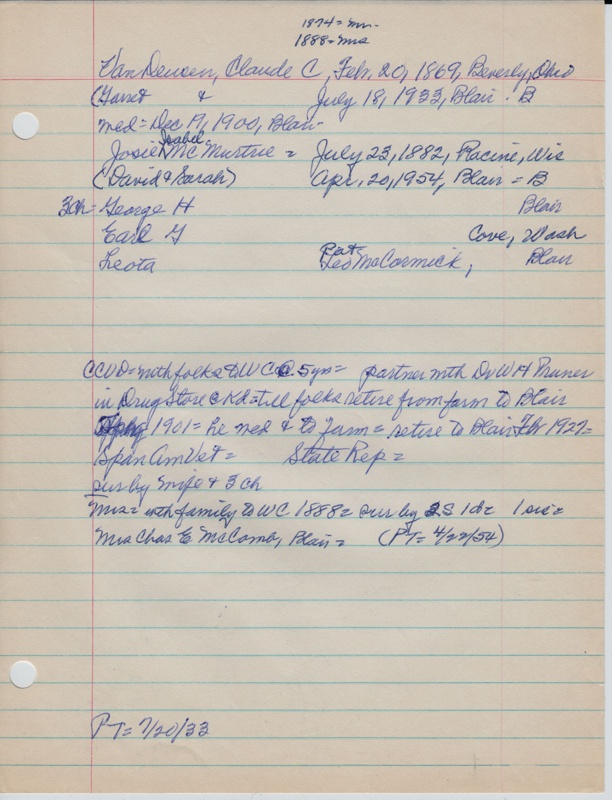 1874 = Mr.
1888 = Mrs
Van Deusen, Claude C, Feb. 20, 1869, Beverly, Ohio
(Garret & July 18, 1933, Blair - B
med = Dec 19, 1900, Blair -
Isabel
Josie McMurtrie = July 23, 1882, Racine, Wis
(David & Sarah) Apr. 20, 1954, Blair = B
3ch = George H Blair
Earl G Cove, Wash
Pat
Leota Leo McCormick, Blair
CCVD = with folks to WC @ 5 yrs = partner with Dr W H Pruner
in Drug Store @ Kd = till folks retire from farm to Blair
1901 = he med & to farm = retire to Blair Feb 1927 =
Span Am Vet = State Rep =
sur by wife & 3 ch
Mrs = with family to WC 1888 = sur by 2S 1d = 1 sis =
Mrs Chas E McComb, Blair = (PT = 4/22/54)
PT = 7/20/33